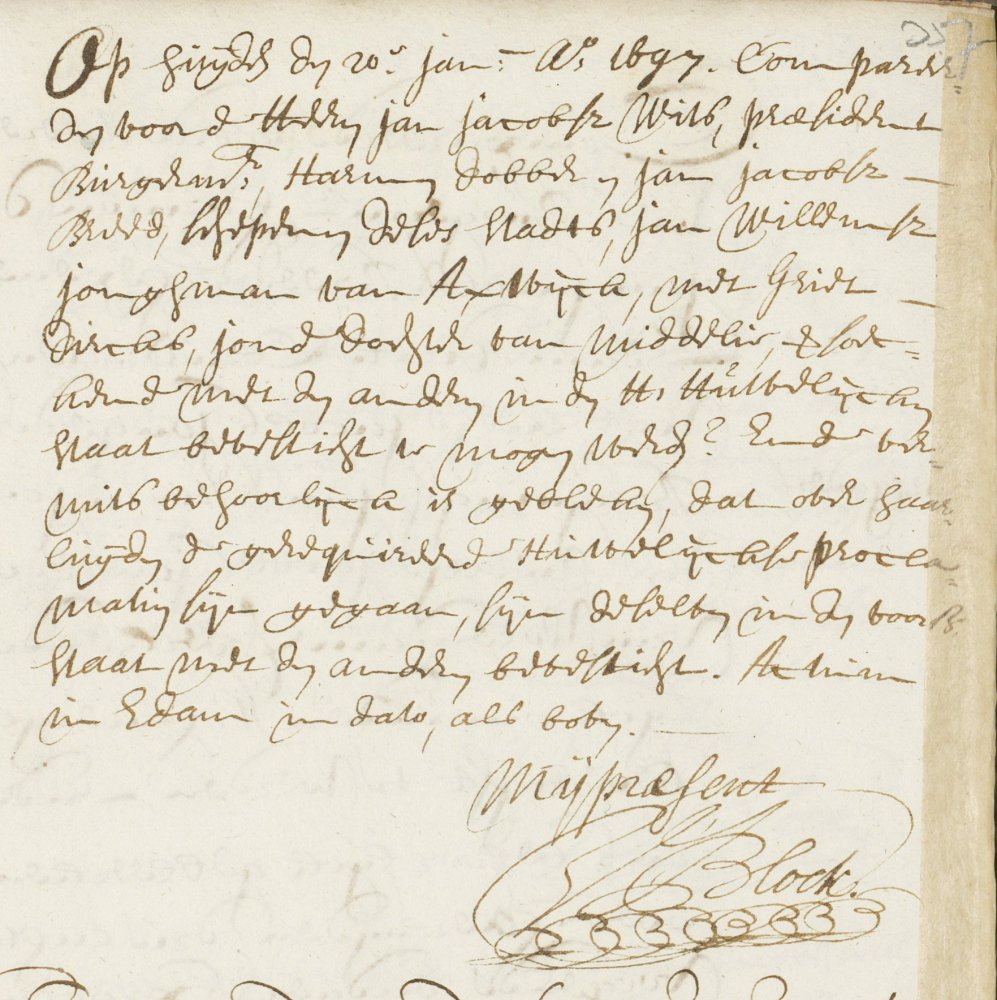 257
Op huijden den 20e. jan: Ao. 1697. Compareer-
den voor d' Heeren jan jacobsz Wits, præsident
Burgermr., Harmen dobber en jan jacobsz
Breed, schepenen deser stadts, jan Willemsz
jonghman van Axwijck, met Griet
dircks, jonde dochter van Middelie, versoec-
kende met den anderen in den H. Huwelijcken
staat bevesticht te mogen werden? Ende ver-
mits behoorlijck is gebleken, dat over haar-
luijden de gerequireerde Huwelijckse procla-
matien sijn gegaan, sijn deselven in den voors.
staat met den anderen bevesticht. Actum
in Edam in dato, als boven.
Mij præsent
Block.